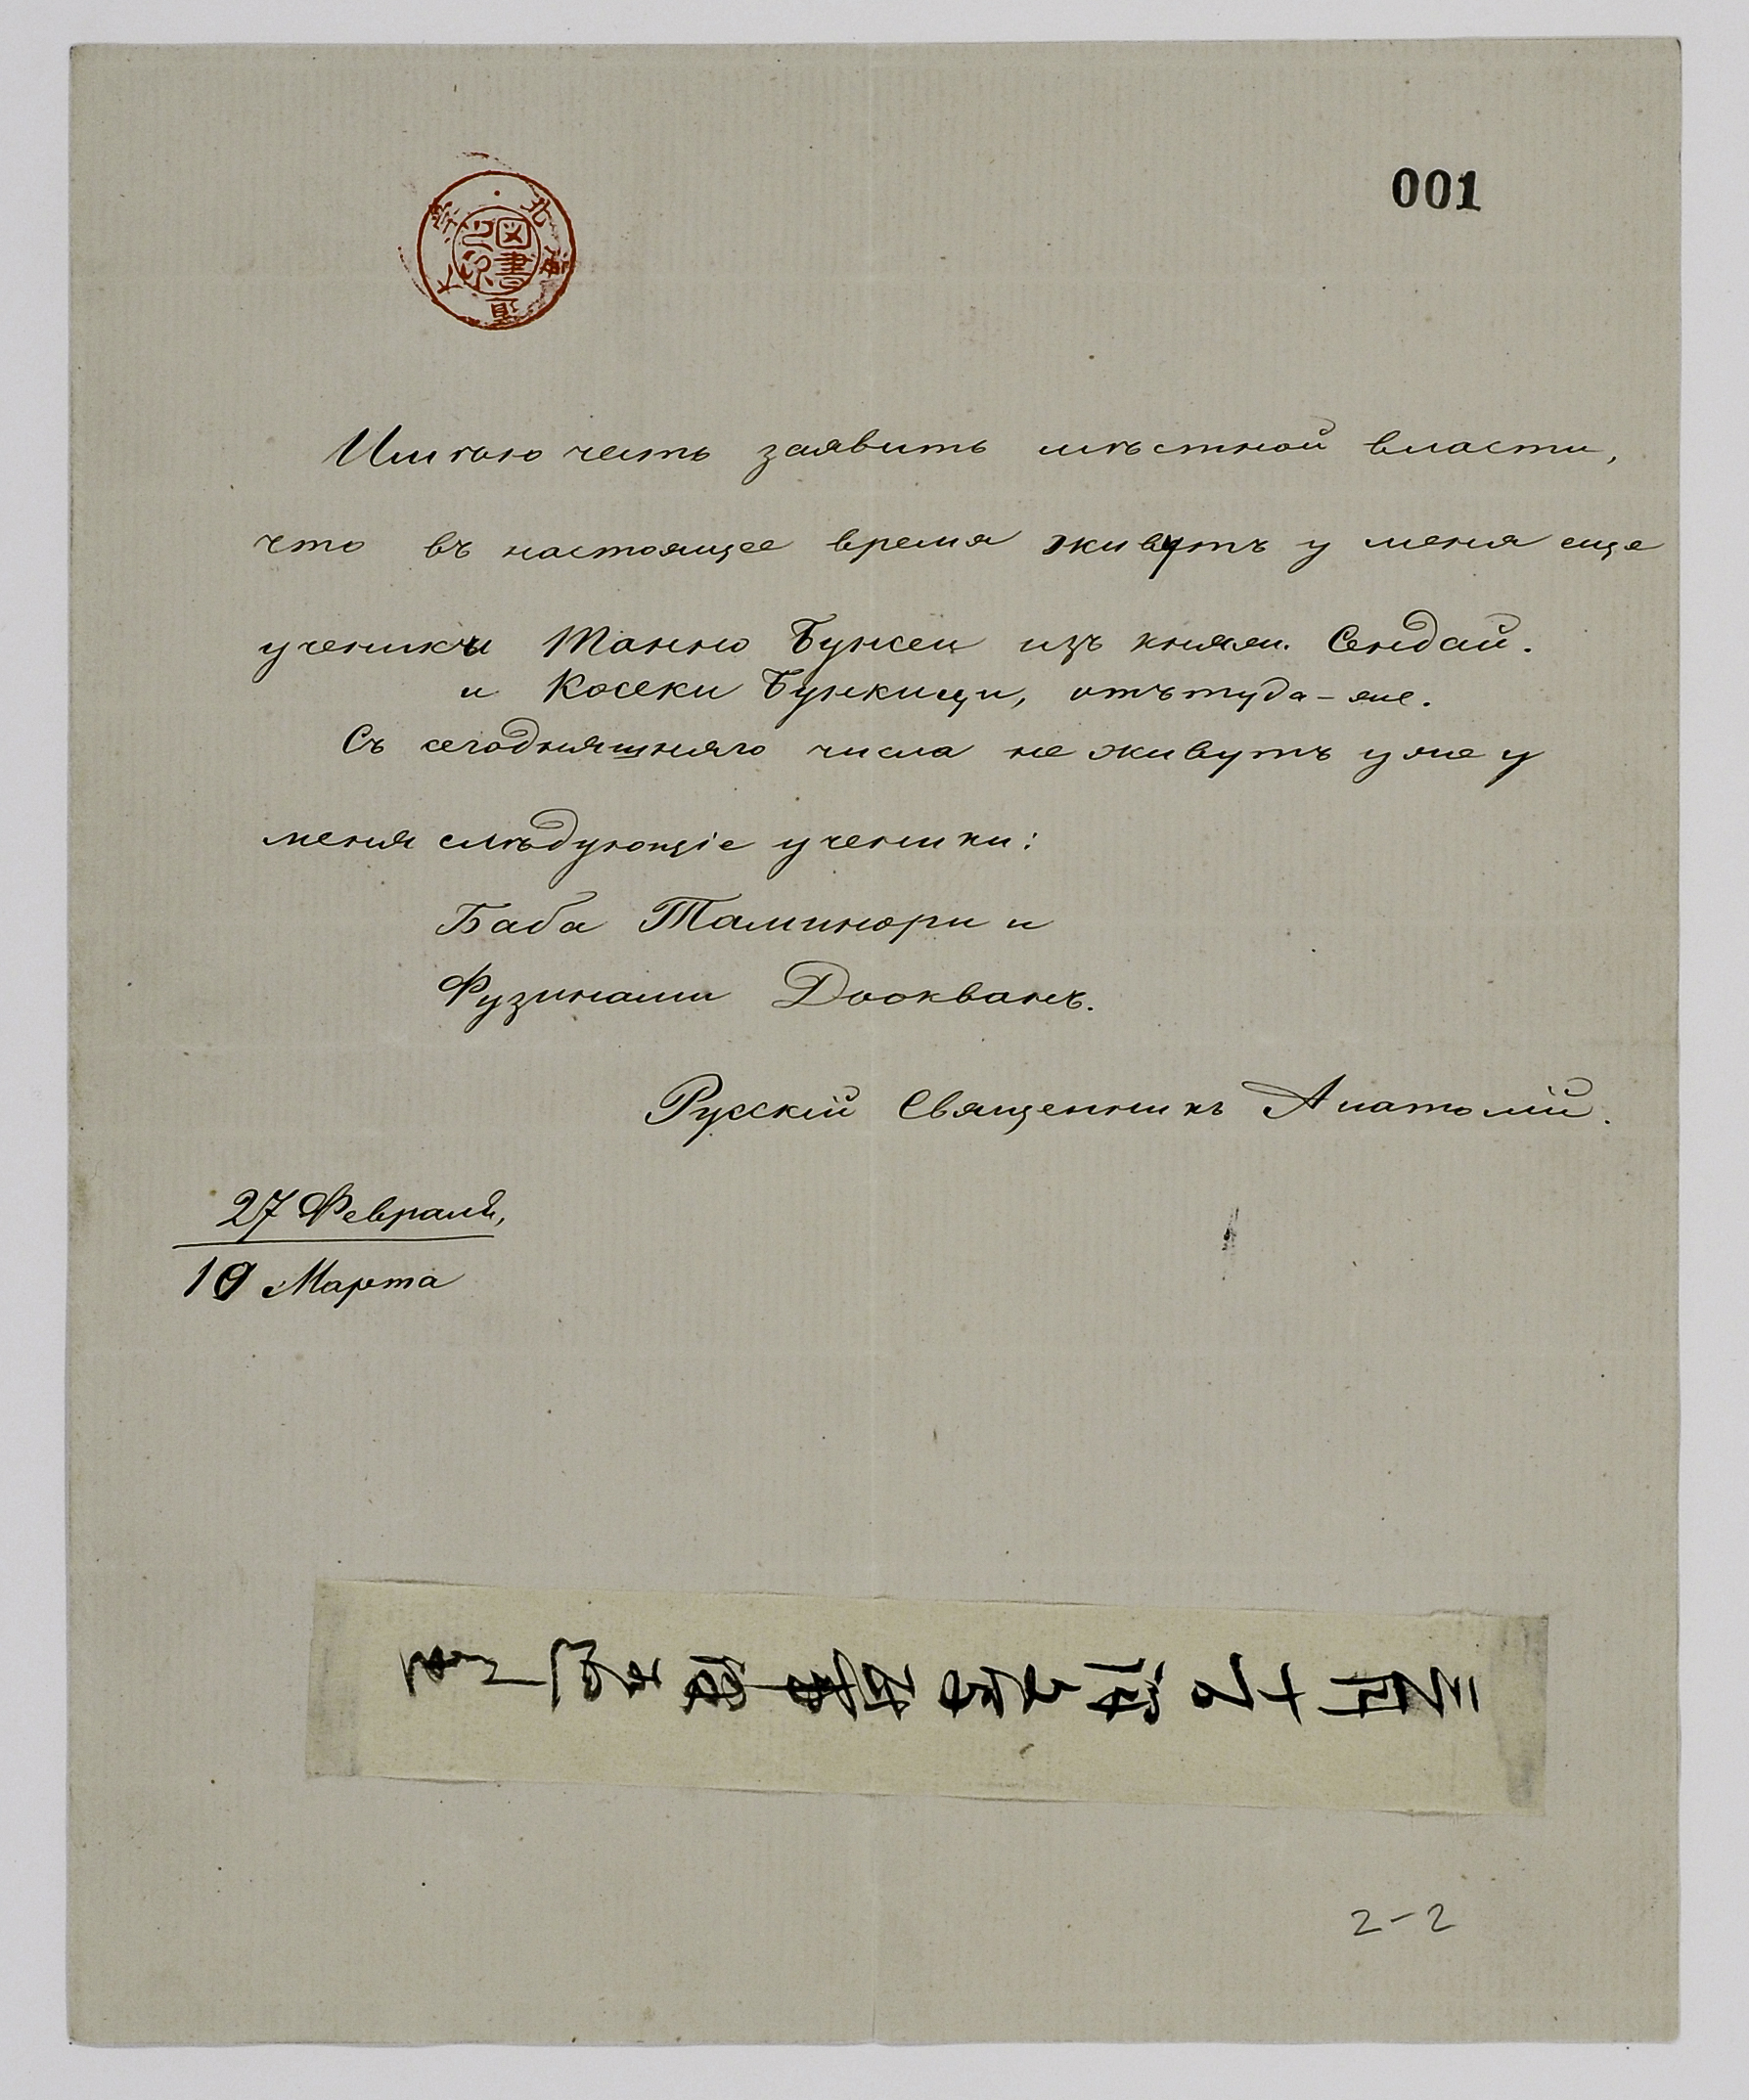 001
Имѣю честь заявить мѣстной власти,
что въ настоящее время живутъ у меня еще
ученики Танно Бунсен изъ княж. Сендай.
и Косеки Бункици, отътуда-же.
Съ сегодняшняго числа не живутъ уже у
меня слѣдующіе ученики:
Баба Таминори и
Фузинами Доокванъ.
Русскій Священникъ Анатолій.
27 Февраля,
10 Марта
2-2